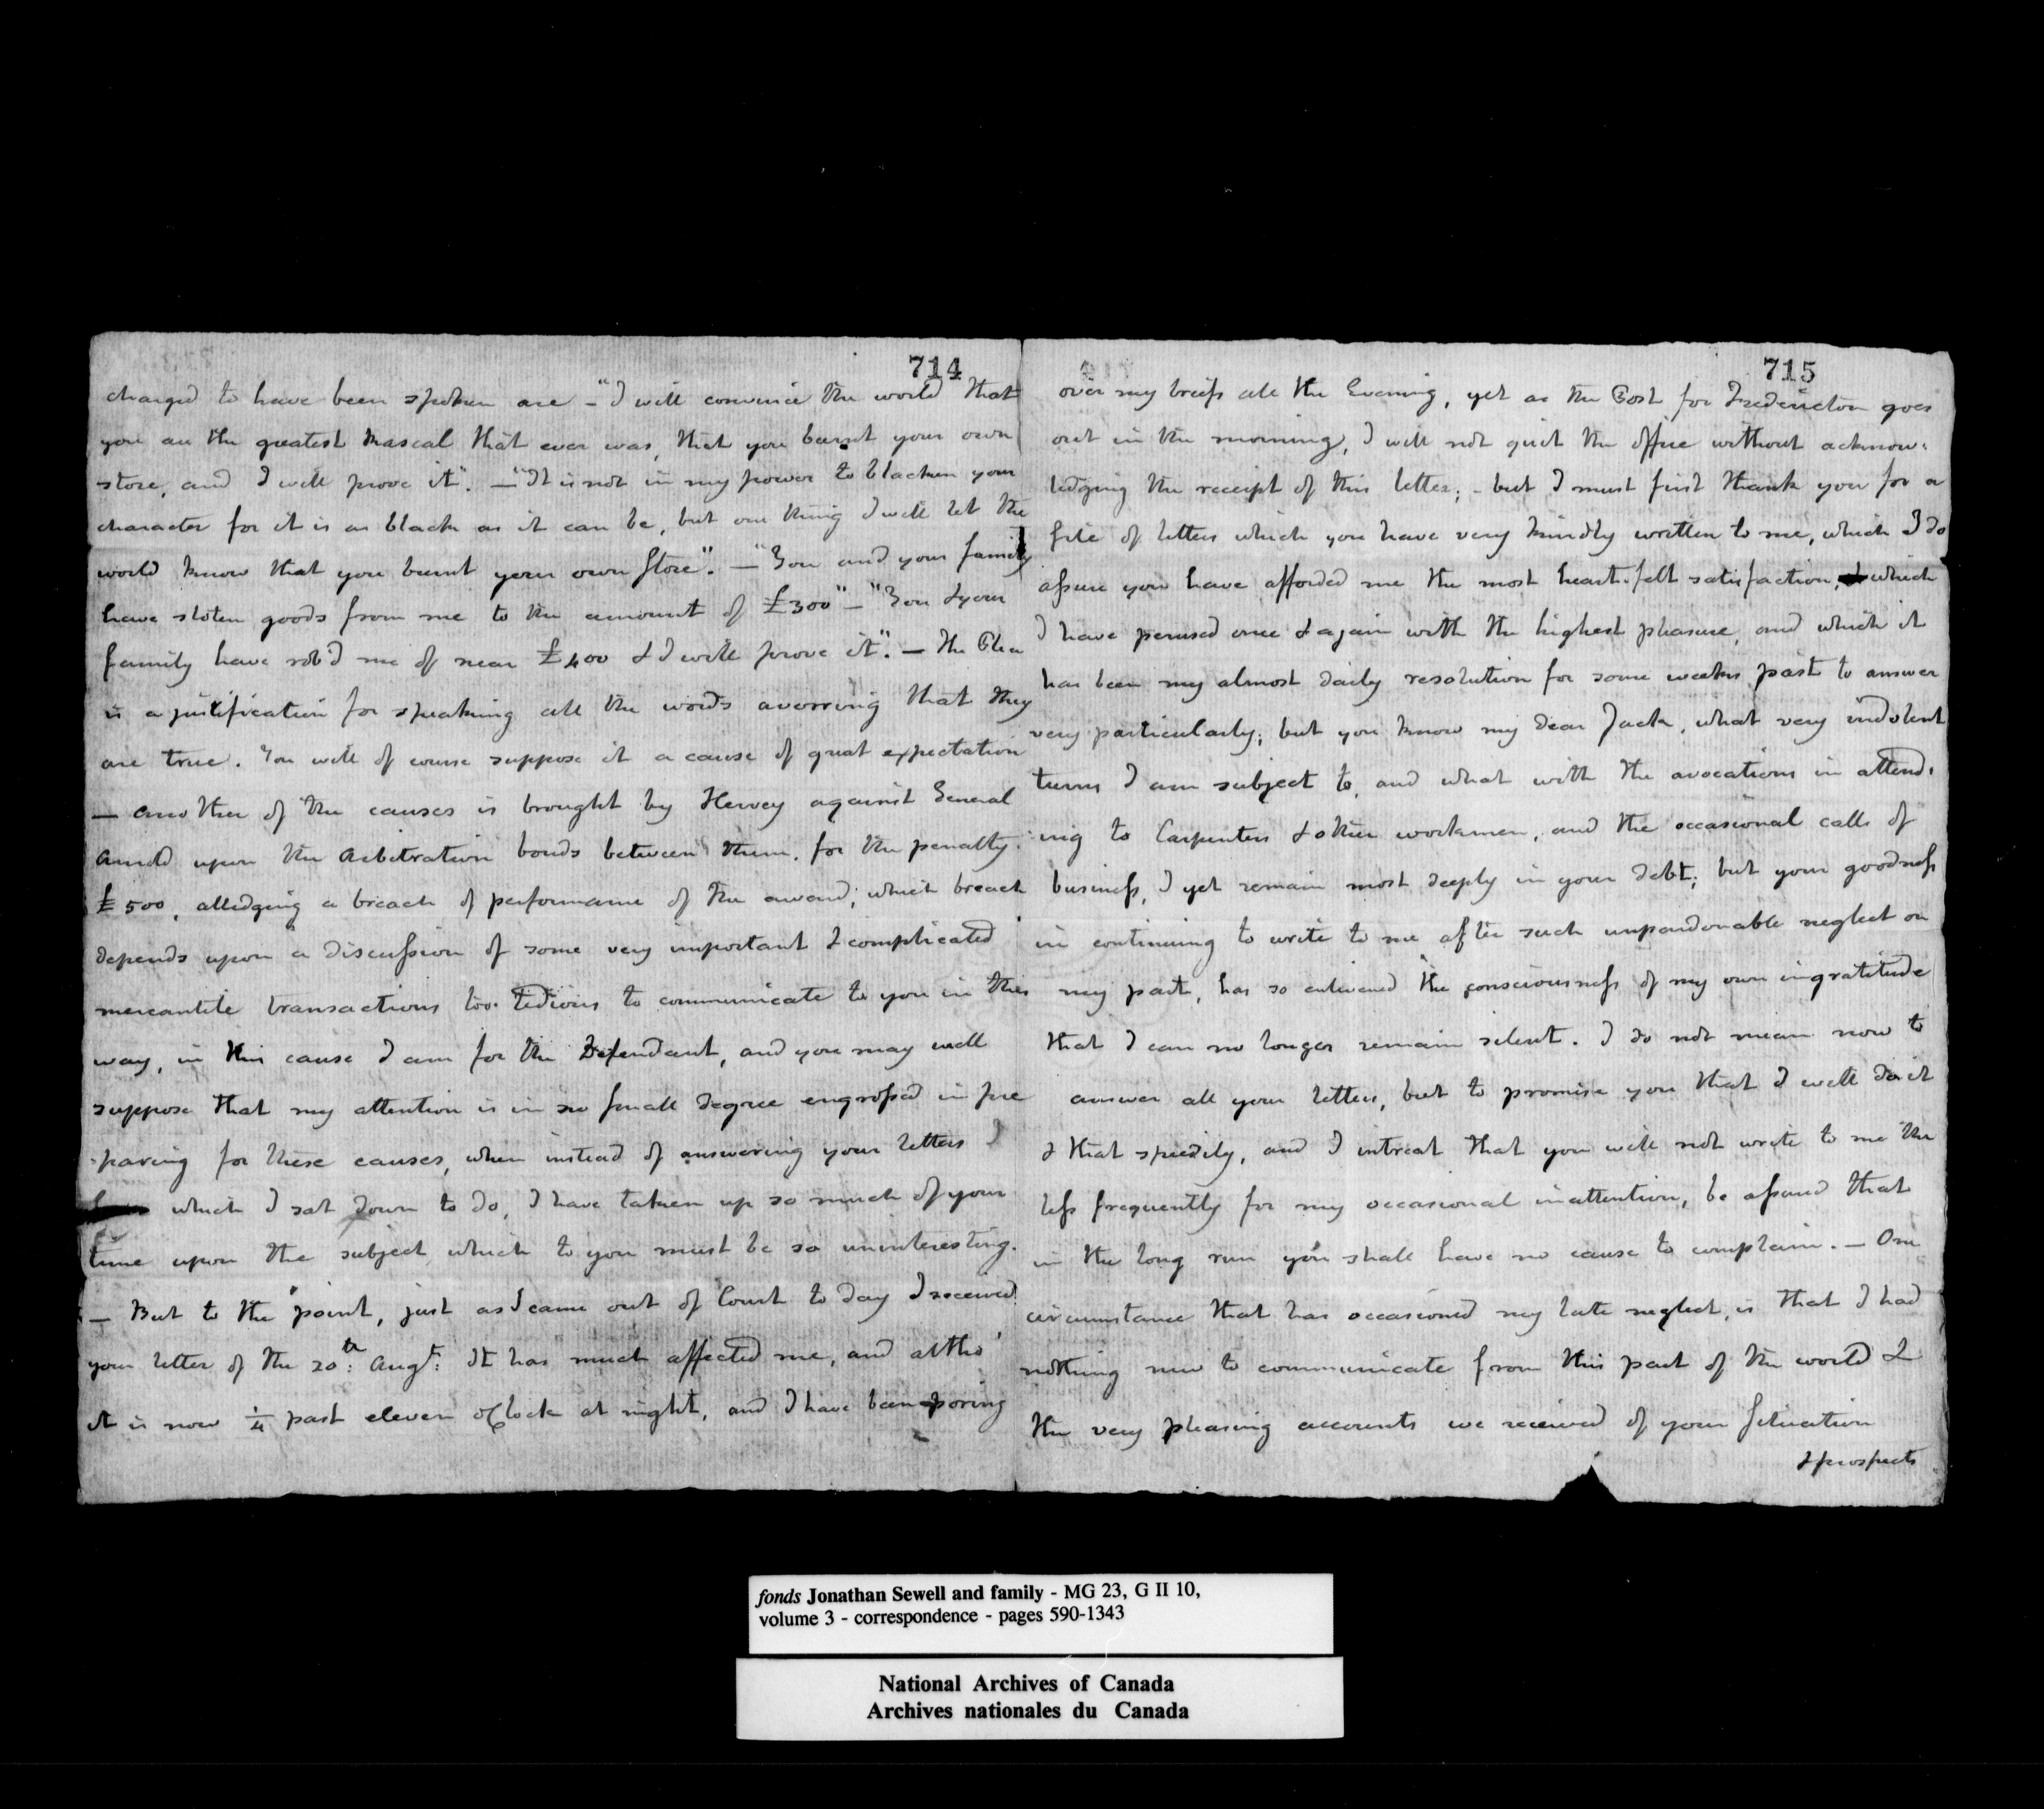 714
charged to have been spoken are - "I will convince the world that
you are the greatest Rascal that ever was, that you burnt your own
store, and I will prove it". - "It is not in my power to blacken your
character for it is as black as it can be, but one thing I will let the
world know that you burnt your own Store". - "You and your family
have stolen goods from me to the amount of £300" - "You & your
family have rob'd me of near £400 & I will prove it". - The Plea
is a justification for speaking all the words averring that they
are true. You will of course suppose it a cause of great expectation
- Another of the causes is brought by Hervey against General
Arnold upon the Arbitration bonds between them, for the penalty
£500, alledging a breach of performance of the award; which breach
depends upon a discussion of some very important & complicated
mercantile transactions too tedious to communicate to you in this
way, in this cause I am for the Defendant, and you may well
suppose that my attention is in no small degree engrossed in pre
-paring for these causes, when instead of answering your letters
which I sat down to do, I have taken up so much of your
time upon the subject which to you must be so uninteresting.
- But to the point, just as I came out of Court to day I received
your letter of the 20th: Augt: It has much affected me, and altho'
it is now ¼ past eleven oClock at night, and I have been poring
715
over my briefs all the Evening, yet as the Post for Fredericton goes
out in the morning, I will not quit the office without acknow-
ledging the receipt of this letter; - but I must first thank you for a
file of letters which you have very kindly written to me, which I do
assure you have afforded me the most heart-felt satisfaction, which
I have perused once & again with the highest pleasure, and which it
has been my almost daily resolution for some weeks past to answer
very particularly; but you know my dear Jack, what very indolent
turns I am subject to, and what with the avocations in attend-
-ing to Carpenters & other workmen, and the occasional calls of
business, I yet remain most deeply in your debt; but your goodness
in continuing to write to me after such unpardonable neglect on
my part, has so enlivened the consciousness of my own ingratitude
that I can no longer remain silent. I do not mean now to
answer all your letters, but to promise you that I will do it
& that speedily, and I intreat that you will not write to me the
less frequently for my occasional inattention, be assured that
in the long run you shall have no cause to complain. - One
circumstance that has occasioned my late neglect, is that I had
nothing new to communicate from this part of the world &
the very pleasing accounts we received of your Situation
& prospects
fonds Jonathan Sewell and family - MG 23, G II 10,
volume 3 - correspondence - pages 590-1343
National Archives of Canada
Archives nationales du Canada